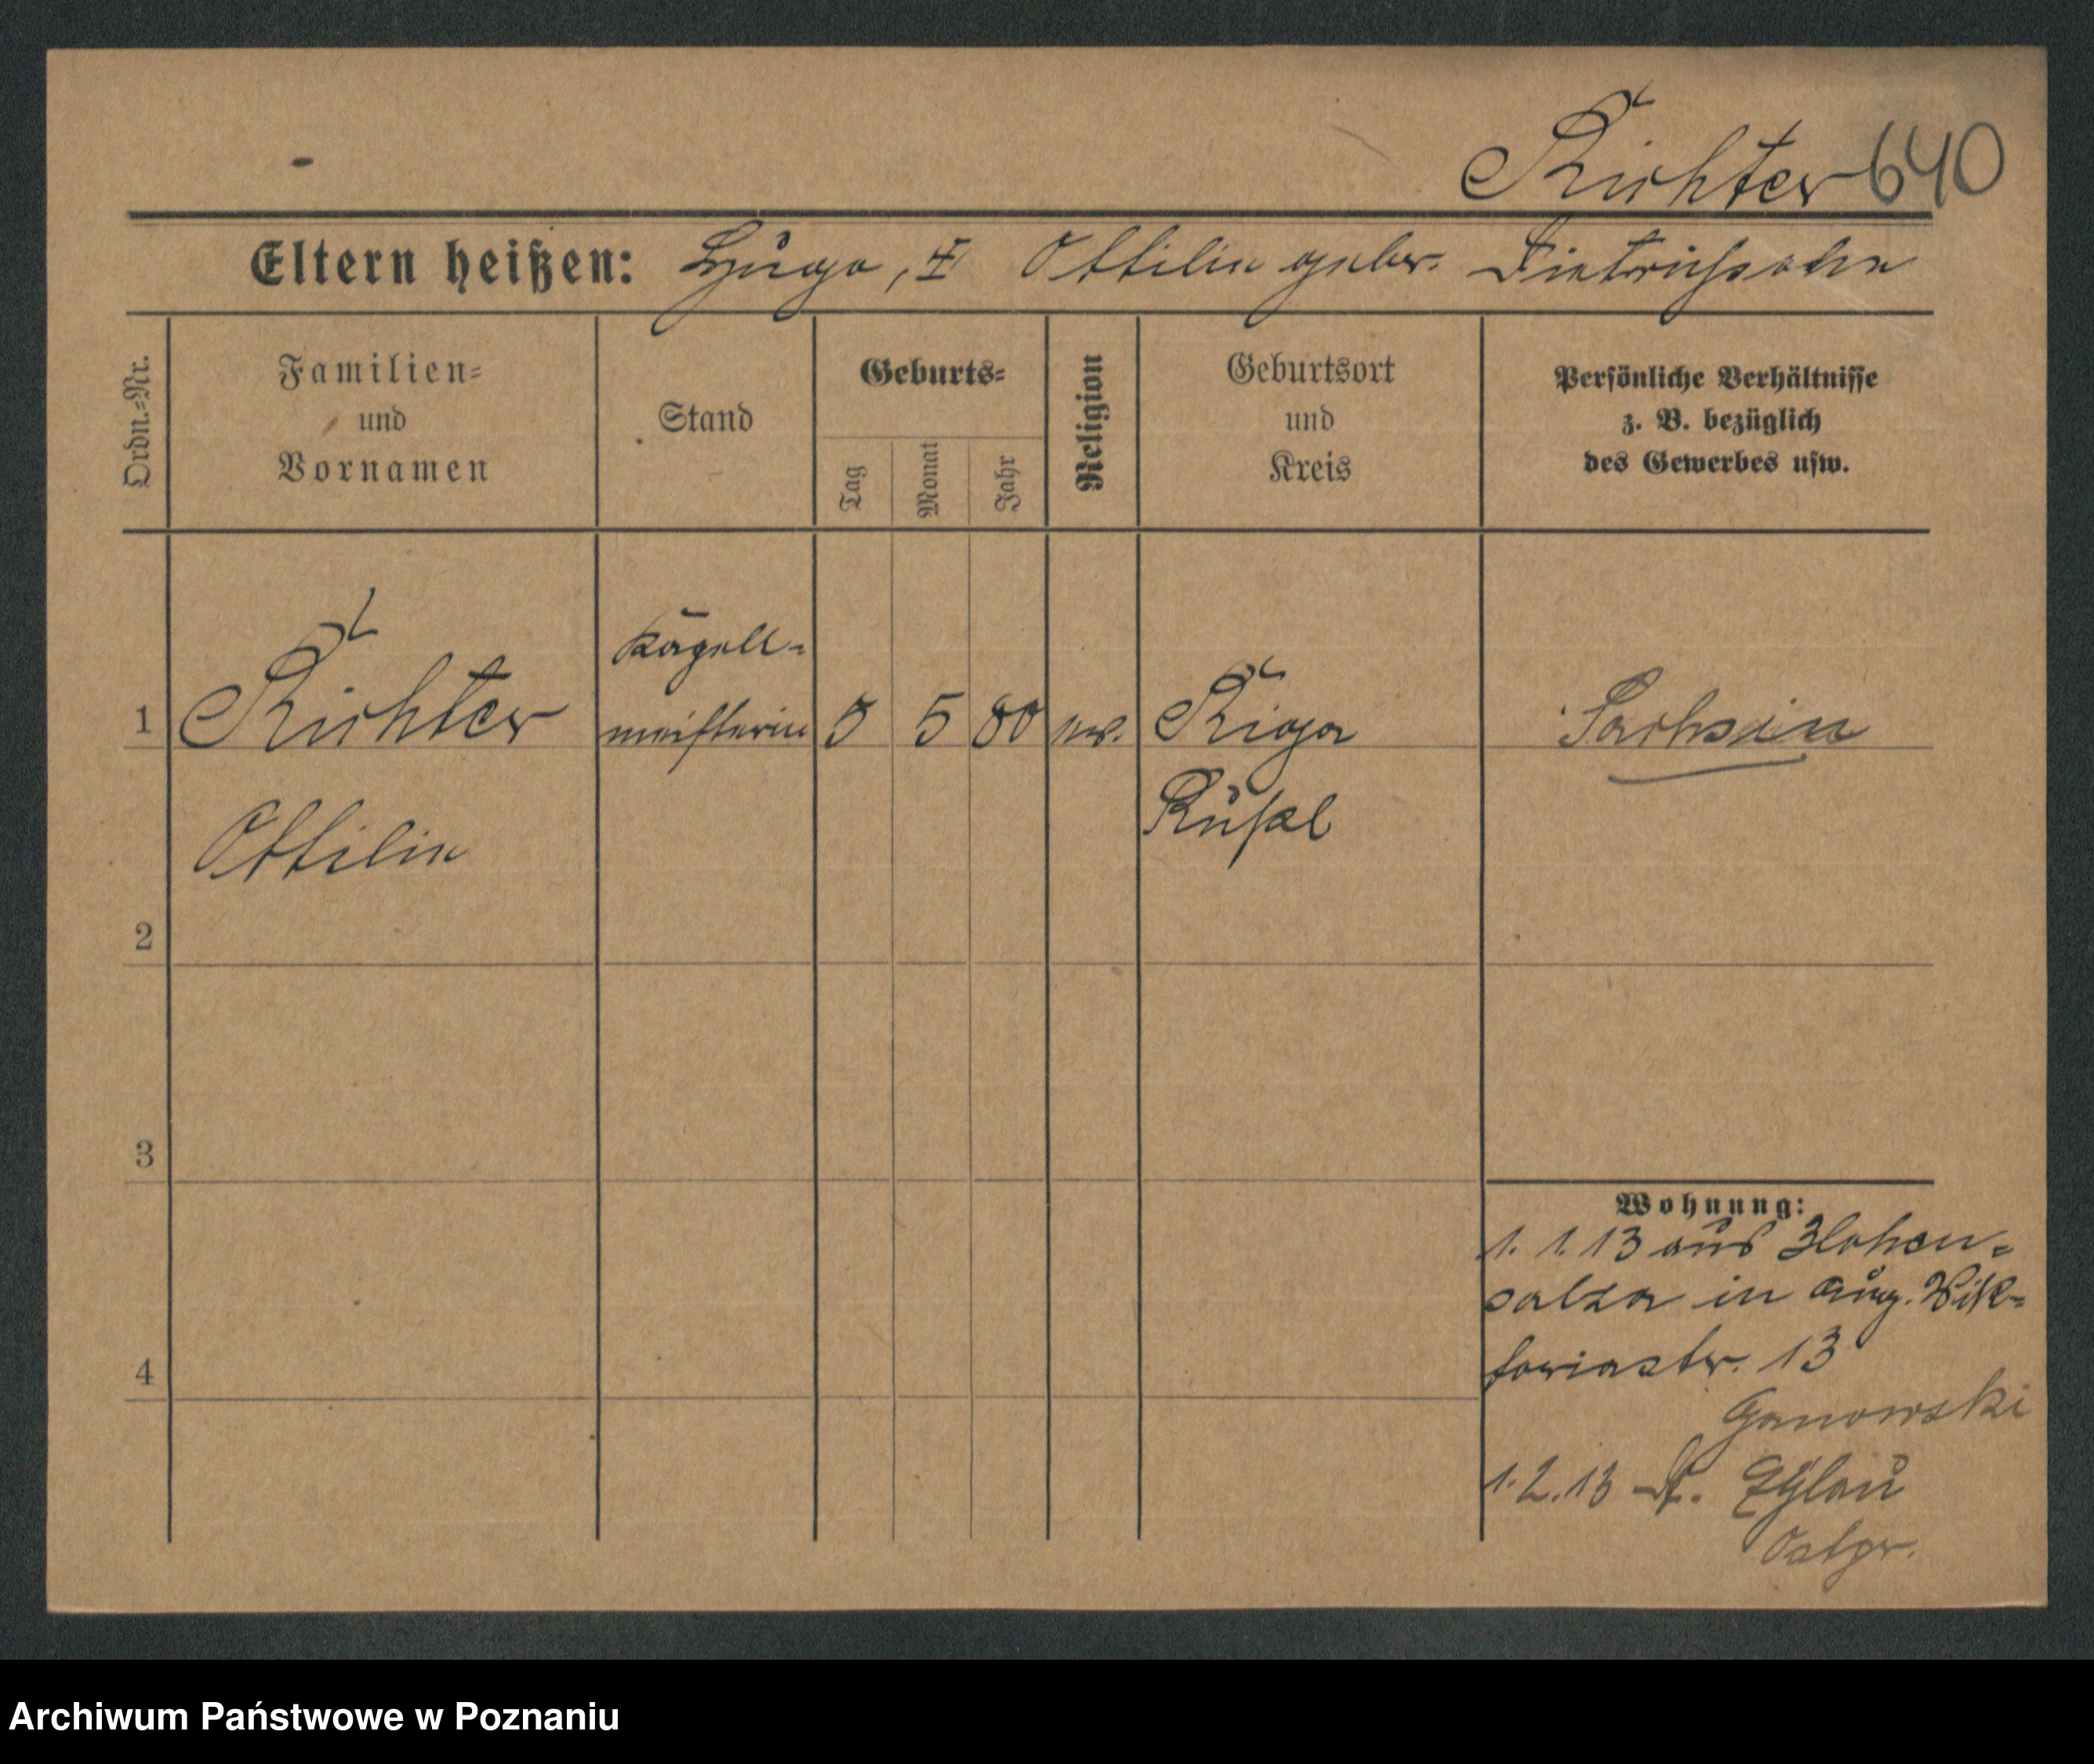 Richter 640
Eltern heißen: Hugo, Ottilie geber. Dietrichsohn
Ordn.-Nr.
Familien-
und
Vornamen
Stand
Geburts-
Tag
Monat
Jahr
Religion
Geburtsort
und
Kreis
Persönliche Verhältnisse
z. B. bezüglich
des Gewerbes usw.
1
Richter
Kapell-
meisterin
5
5
80
ev.
Riga
Rußl
Sachsen
Ottilie
2
3
Wohnung:
1. 1. 13 aus Hohen-
salza in Aug. Vik-
toriastr. 13
4
Ganowski
1.2.13 Eylau
Ostpr.
Archiwum Państwowe w Poznaniu